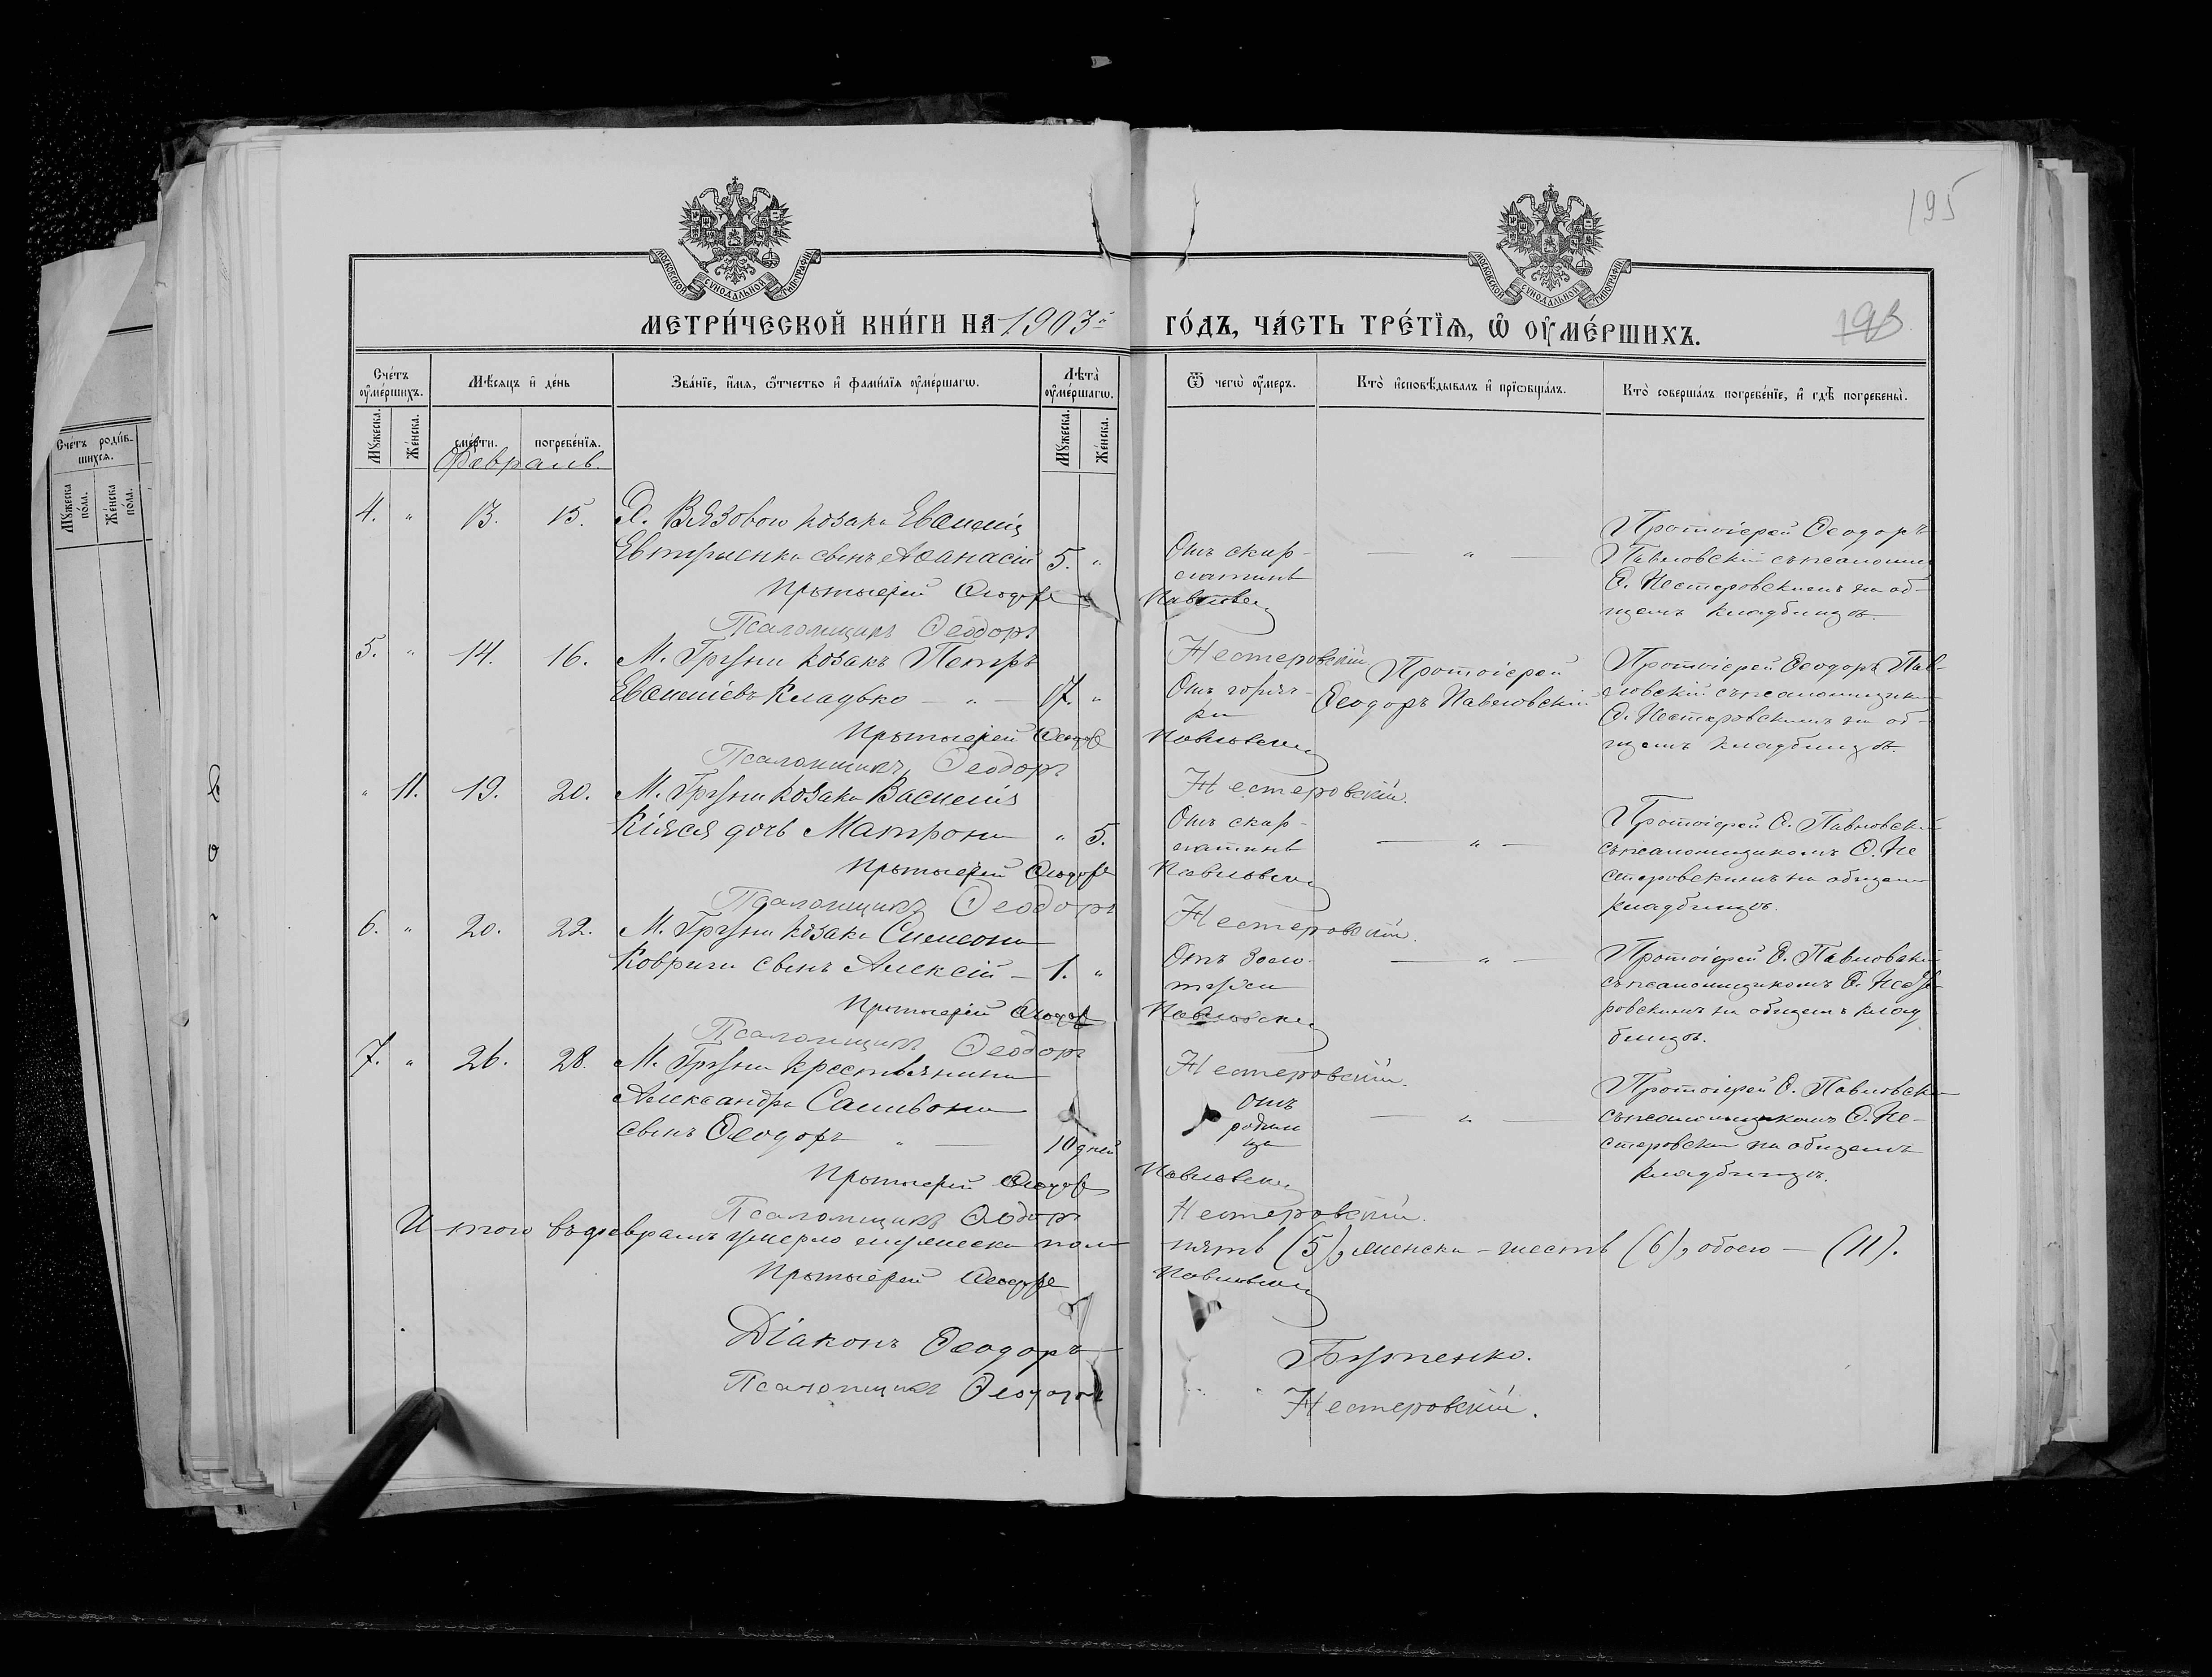 195
МОСКОВСКОЙ СѴНОДАЛЬНОЙ ТИПОГРАФІИ
МОСКОВСКОЙ СѴНОДАЛЬНОЙ ТИПОГРАФІИ
МЕТРИ́ЧЕСКОЙ КНИ́ГИ НА 1903й ГО́ДЪ, ЧА́СТЬ ТРЕ́ТЇѦ, Ѡ҆ ОУ҆МЕ́РШИХЪ.
193
Сче́тъ оу҆ме́ршихъ.
Мѣ́сяцъ и҆ де́нь
Зва́нїе, и҆́мя, ѻ҆́тчество и҆ фами́лїя оу҆ме́ршагѡ.
Лѣ́та оу҆ме́ршагѡ.
Ѿ чегѡ̀ оу҆́меръ.
Кто̀ и҆сповѣ́дывалъ и҆ прїѡбща́лъ.
Кто̀ соверша́лъ погребе́нїе, и҆ гдѣ̀ погребены̀.
Мꙋ́жеска. Же́нска. сме́рти. погребе́нїя. Мꙋ́жеска. Же́нска.
Февраль.
Сче́тъ роди́в-
шихся.
Мꙋ́жеска по́ла. Же́нска по́ла.
4. „ 13. 15. Д. Вязового козака Евсигнія
сынъ Аѳанасій 5. „
Отъ скар-
латины
— „ —
Протоіерей Ѳеодоръ
Павловскій съ псаломщ.
Ѳ. Нестеровскимъ на об-
щемъ кладбищѣ.
Протоіерей Ѳеодоръ Павловскій
Псаломщикъ Ѳеодоръ Нестеровскій
5. „ 14. 16. М. Груни козакъ Петръ
Кладько — „ — 17. „
Отъ горяч-
ки
Протоіерей
Ѳеодоръ Павловскій
Протоіерей Ѳеодоръ Пав-
ловскій съ псаломщикомъ
Ѳ. Нестеровскимъ на об-
щемъ кладбищѣ.
Протоіерей Ѳеодоръ Павловскій
Псаломщикъ Ѳеодоръ Нестеровскій.
„ 11. 19. 20. М. Груни козака Василія
Кіяся дочь Матрона „ 5.
Отъ скар-
латины
— „ —
Протоіерей Ѳ. Павловскій
съ псаломщикомъ Ѳ. Не
стеровскимъ на общемъ
кладбищѣ.
Протоіерей Ѳеодоръ Павловскій
Псаломщикъ Ѳеодоръ Нестеровскій.
6. „ 20. 22. М. Груни козака Симеона
Ковриги сынъ Алексій — 1. „
Отъ золо-
тухи
— „ —
Протоіерей Ѳ. Павловскій
съ псаломщикомъ Ѳ. Несте-
ровскимъ на общемъ клад
бищѣ.
Протоіерей Ѳеодоръ Павловскій
Псаломщикъ Ѳеодоръ Нестеровскій.
7. „ 26. 28. М. Груни крестьянина
Александра Саливона
сынъ Ѳеодоръ „ — 10 дней
Отъ
родим
ца
— „ —
Протоіерей Ѳ. Павловскій
съ псаломщикомъ Ѳ. Не-
стеровскимъ на общемъ
кладбищѣ.
Протоіерей Ѳеодоръ Павловскій
Псаломщикъ Ѳеодоръ Нестеровскій.
Итого въ февралѣ умерло мужеска пола пять (5), женска — шесть (6), обоего — (11).
Протоіерей Ѳеодоръ Павловскій
Діаконъ Ѳеодоръ
Псаломщикъ Ѳеодоръ Нестеровскій.